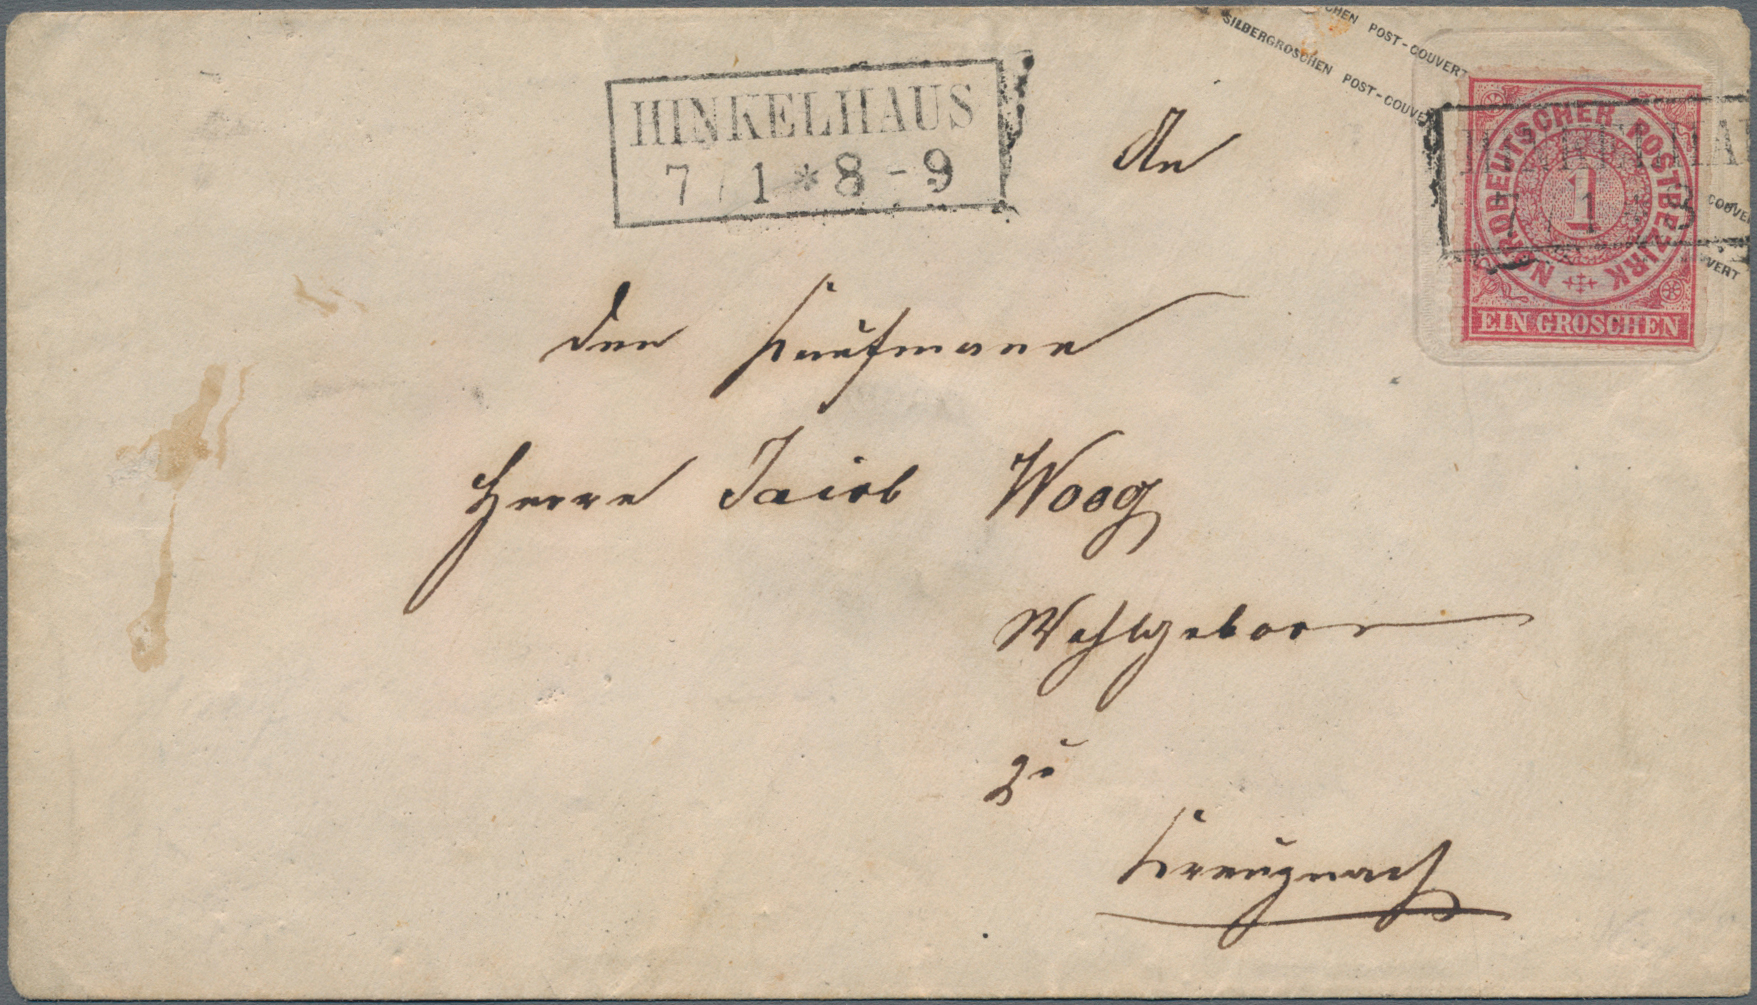 CHEN POST-COUVERT
SILBERGROSCHEN POST-COUVE
HINKELHAUS
7 1 * 8 - 9
NORDDEUTSCHER POSTBEZIRK
1
EIN GROSCHEN
HINKELHAU
7 1 8
COUVE
VERT
An
den Kaufmann
Herrn Jacob Woog
Wohlgeboren
zu
Kreuznach